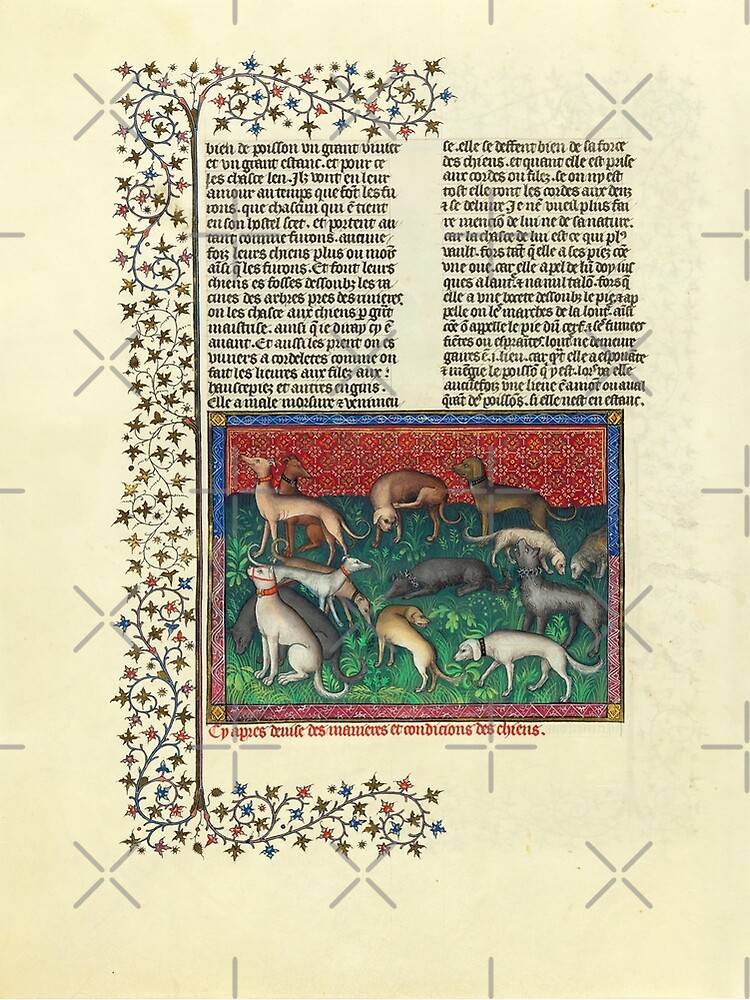 bien de poisson vn grant viuier
et vn grant estanc. et pour ce
les chasce len. Ilz vont en leur
amour au temps que font les fu
rons. que chascun qui ē tient
en son hostel scet. et portent au
tant comme furons. aucune
foiz leurs chiens plus ou moīs
aussi q̄ les furons. Et font leurs
chiens es fosses dessoubz les ra
cines des arbres pres des riuieres
on les chasce aux chiens p grāt
maistrise. ainsi q̄ ie diray cy ē
auant. Et aussi les prent on es
viuiers a cordeletes comme on
fait les lieures aux filez aux
haussepiez et autres engins.
Elle a male morsure & venimeu
se. elle se deffent bien de sa force
des chiens. et quant elle est prise
aux cordes ou filez. se on ny est
tost elle ront les cordes aux denz
& se deliure. Je nē vueil plus fai
re menciō de lui ne de sa nature.
car la chasce de lui est ce qui pl9
vault. fors tāt q̄ elle a ses piez cōe
vne oue. car elle a pel de lū doy ius
ques a laut. & na nul talō. fors q̄
elle a vne bocete dessoubz le pie. & ap
pelle on les marches de la loutre aussi
cōe ō appelle le pie du cerf. & ses fumees
fientes ou espraītes. loutre ne demeure
gaires ē .i. lieu. car q̄t elle a espouāte
& mēgie le poissō q̄ y est. lors va elle
aucūefoiz vne lieue ē amōt ou aual
querāt des poissōs. si elle nest en estanc.
Cy apres deuise des manieres et condicions des chiens.